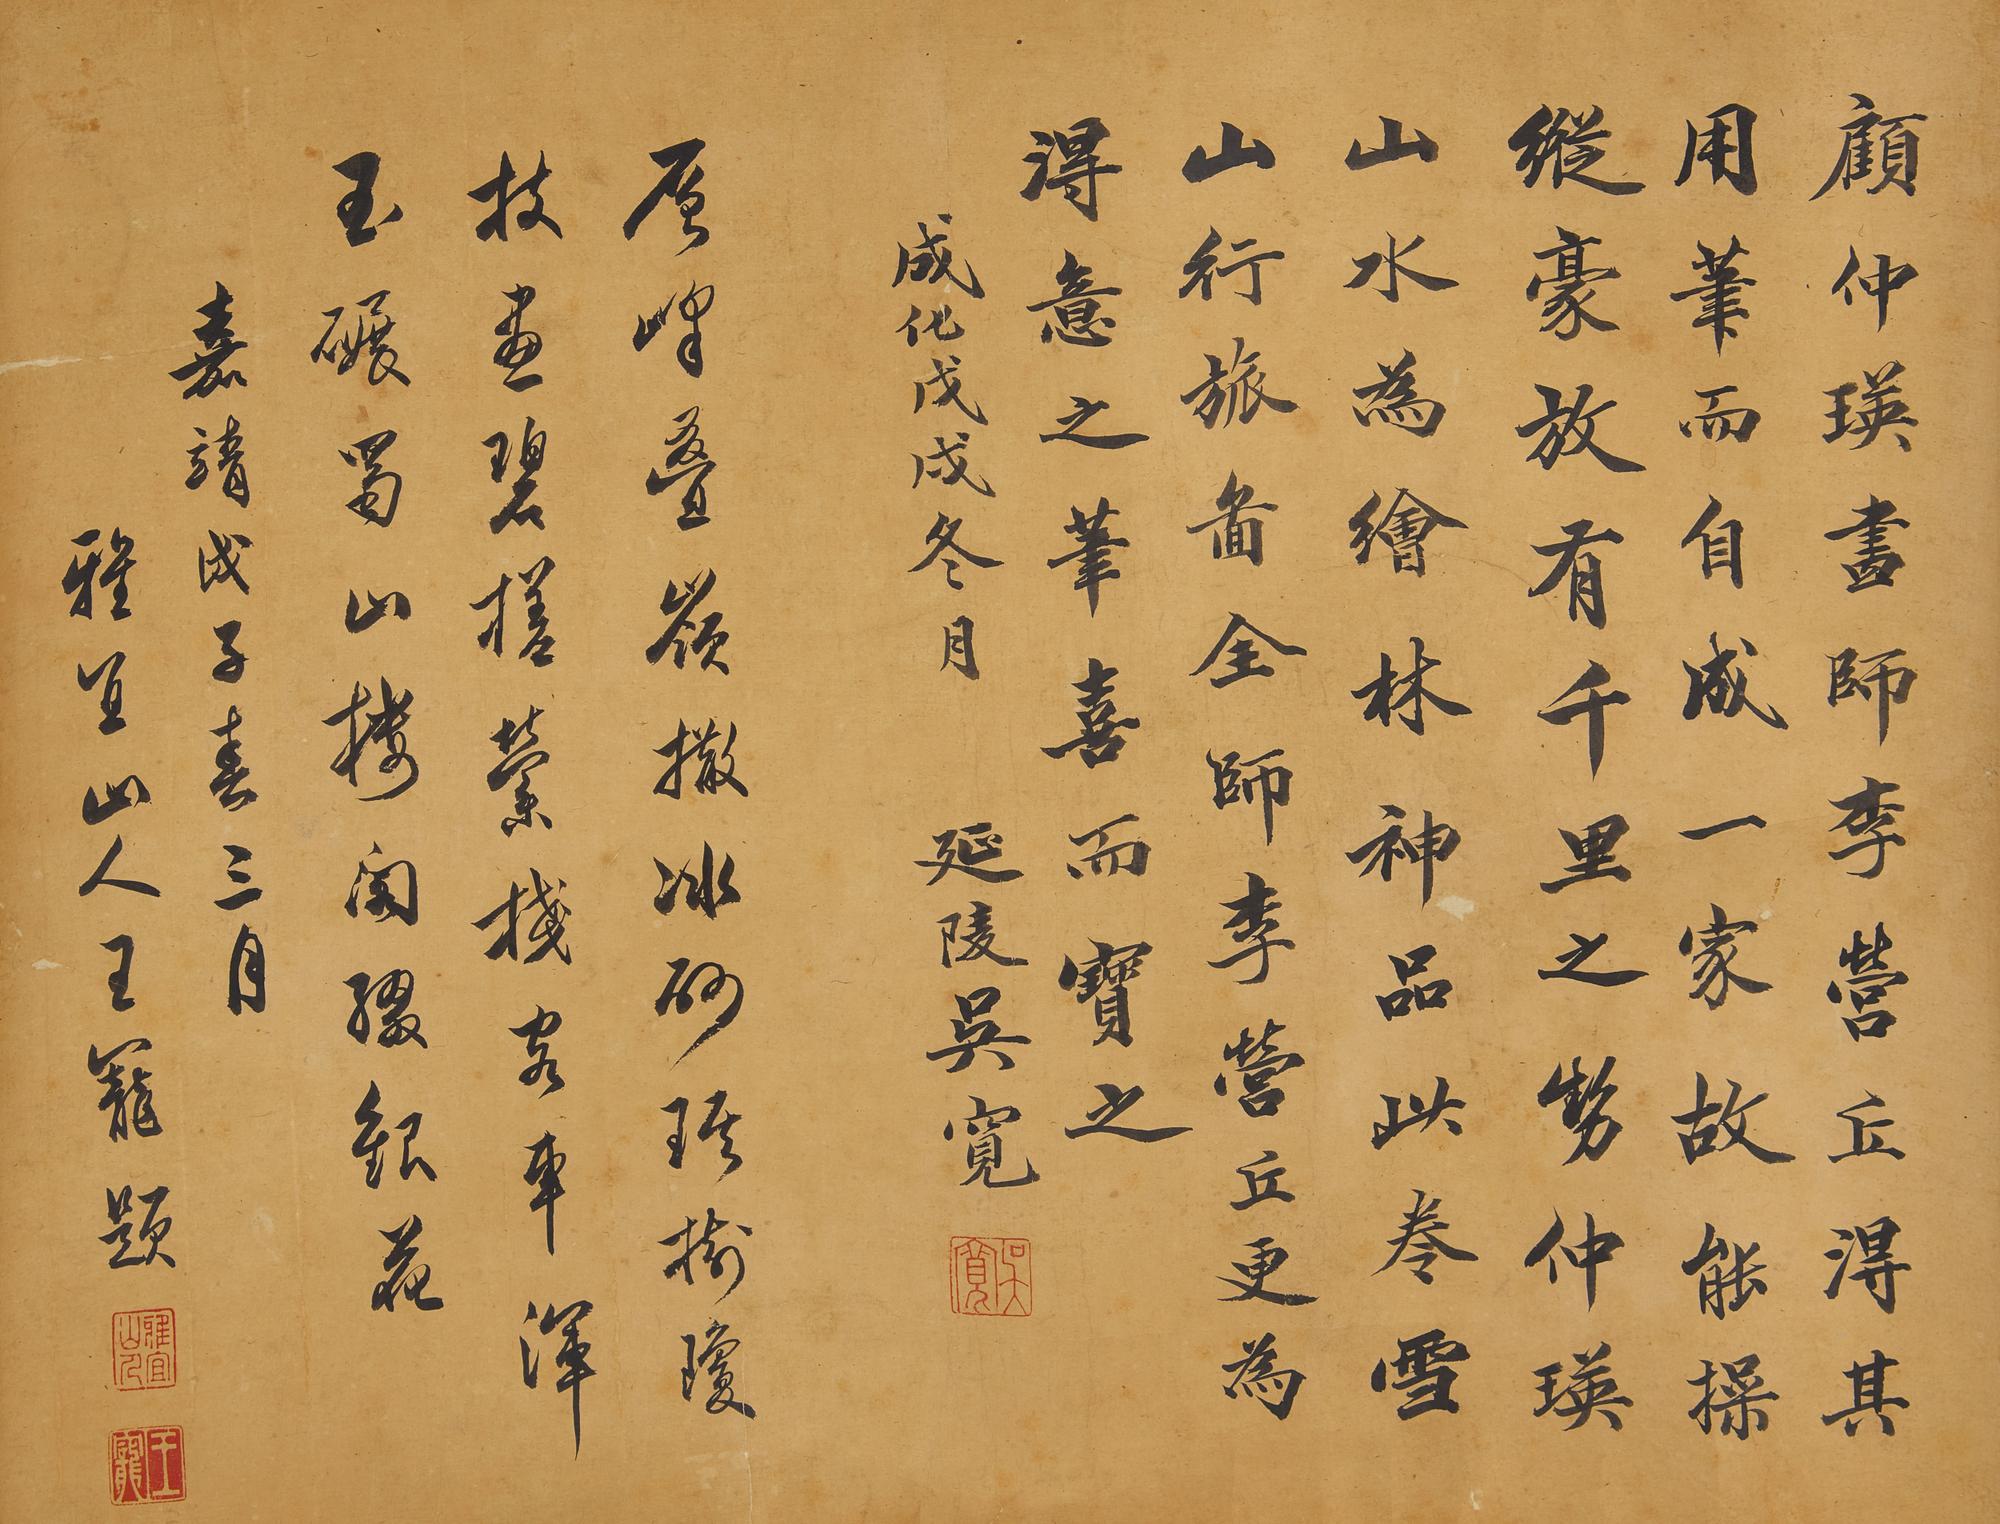 顧仲瑛畫師李營丘得其
用筆而自成一家故能操
縱豪放有千里之勢仲瑛
山水為繪林神品此卷雪
山行旅啚全師李營丘更為
得意之筆喜而寶之
成化戊戌冬月 延陵吳寬
吳寬
層峰疊嶺撒冰砂琪樹瓊
枝畫碧槎縈棧客車渾
玉碾蜀山樓閣綴銀花
嘉靖戊子春三月
雅宜山人王寵題
雅宜山人
王寵